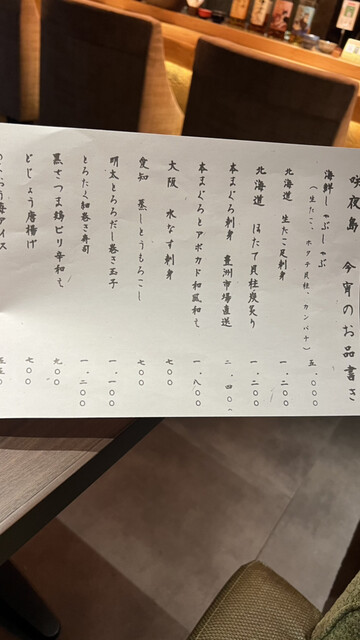 夜島 今宵のお品書き
海鮮しゃぶしゃぶ 五.〇〇〇
(生たこ、ホタテ貝柱、カンパチ)
北海道 生たこ足刺身 一.二〇〇
北海道 ほたて貝柱炭炙り 一.二〇〇
本まぐろ刺身 豊洲市場直送 二.四〇〇
本まぐろとアボカド和風和え 一.八〇〇
大阪 水なす刺身 七〇〇
愛知 蒸しとうもろこし 七〇〇
明太とろろだし巻き玉子 一.一〇〇
とろたく細巻き寿司 一.二〇〇
黒さつま鶏ピリ辛和え 九〇〇
どじょう唐揚げ 七〇〇
アイス 五五〇